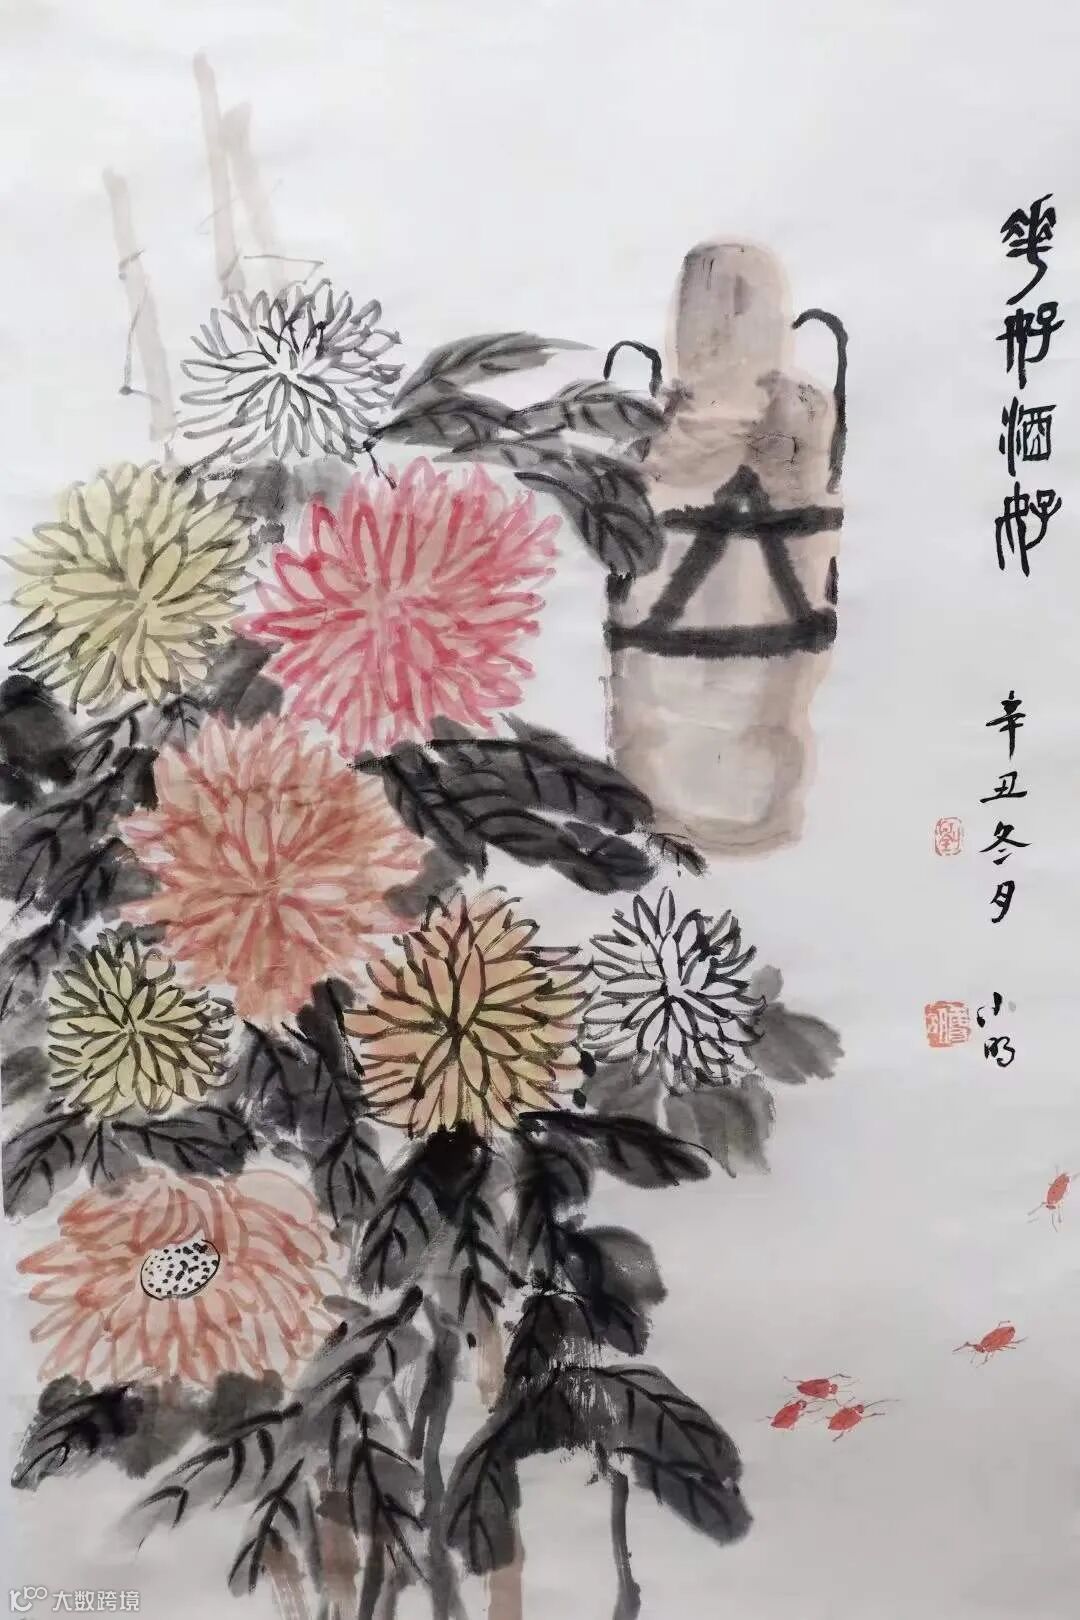 华好酒好
辛丑冬月
小明
大数跨境